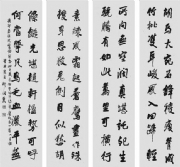 胡馬大宛名鋒稜瘦骨成
竹批雙耳峻風入四蹄輕
所向無空闊真堪托死生
驍騰有如此萬里可橫行
素練風霜起蒼鷹畫作殊
㩳身思狡兔側目似愁胡
絛鏇光堪擿軒楹勢可呼
何當擊凡鳥毛血灑平蕪